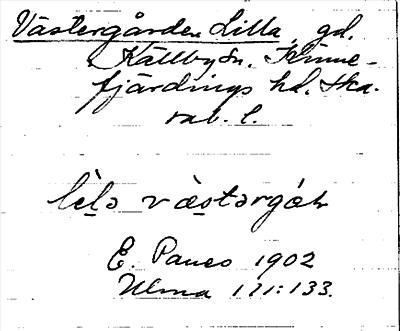 Västergården Lilla, gd.
Källby sn. Kinne-
fjärdings hd. Ska-
rab. l.
lìlə västərgɑ́ɳ
E. Paues 1902
Ulma 171:133.